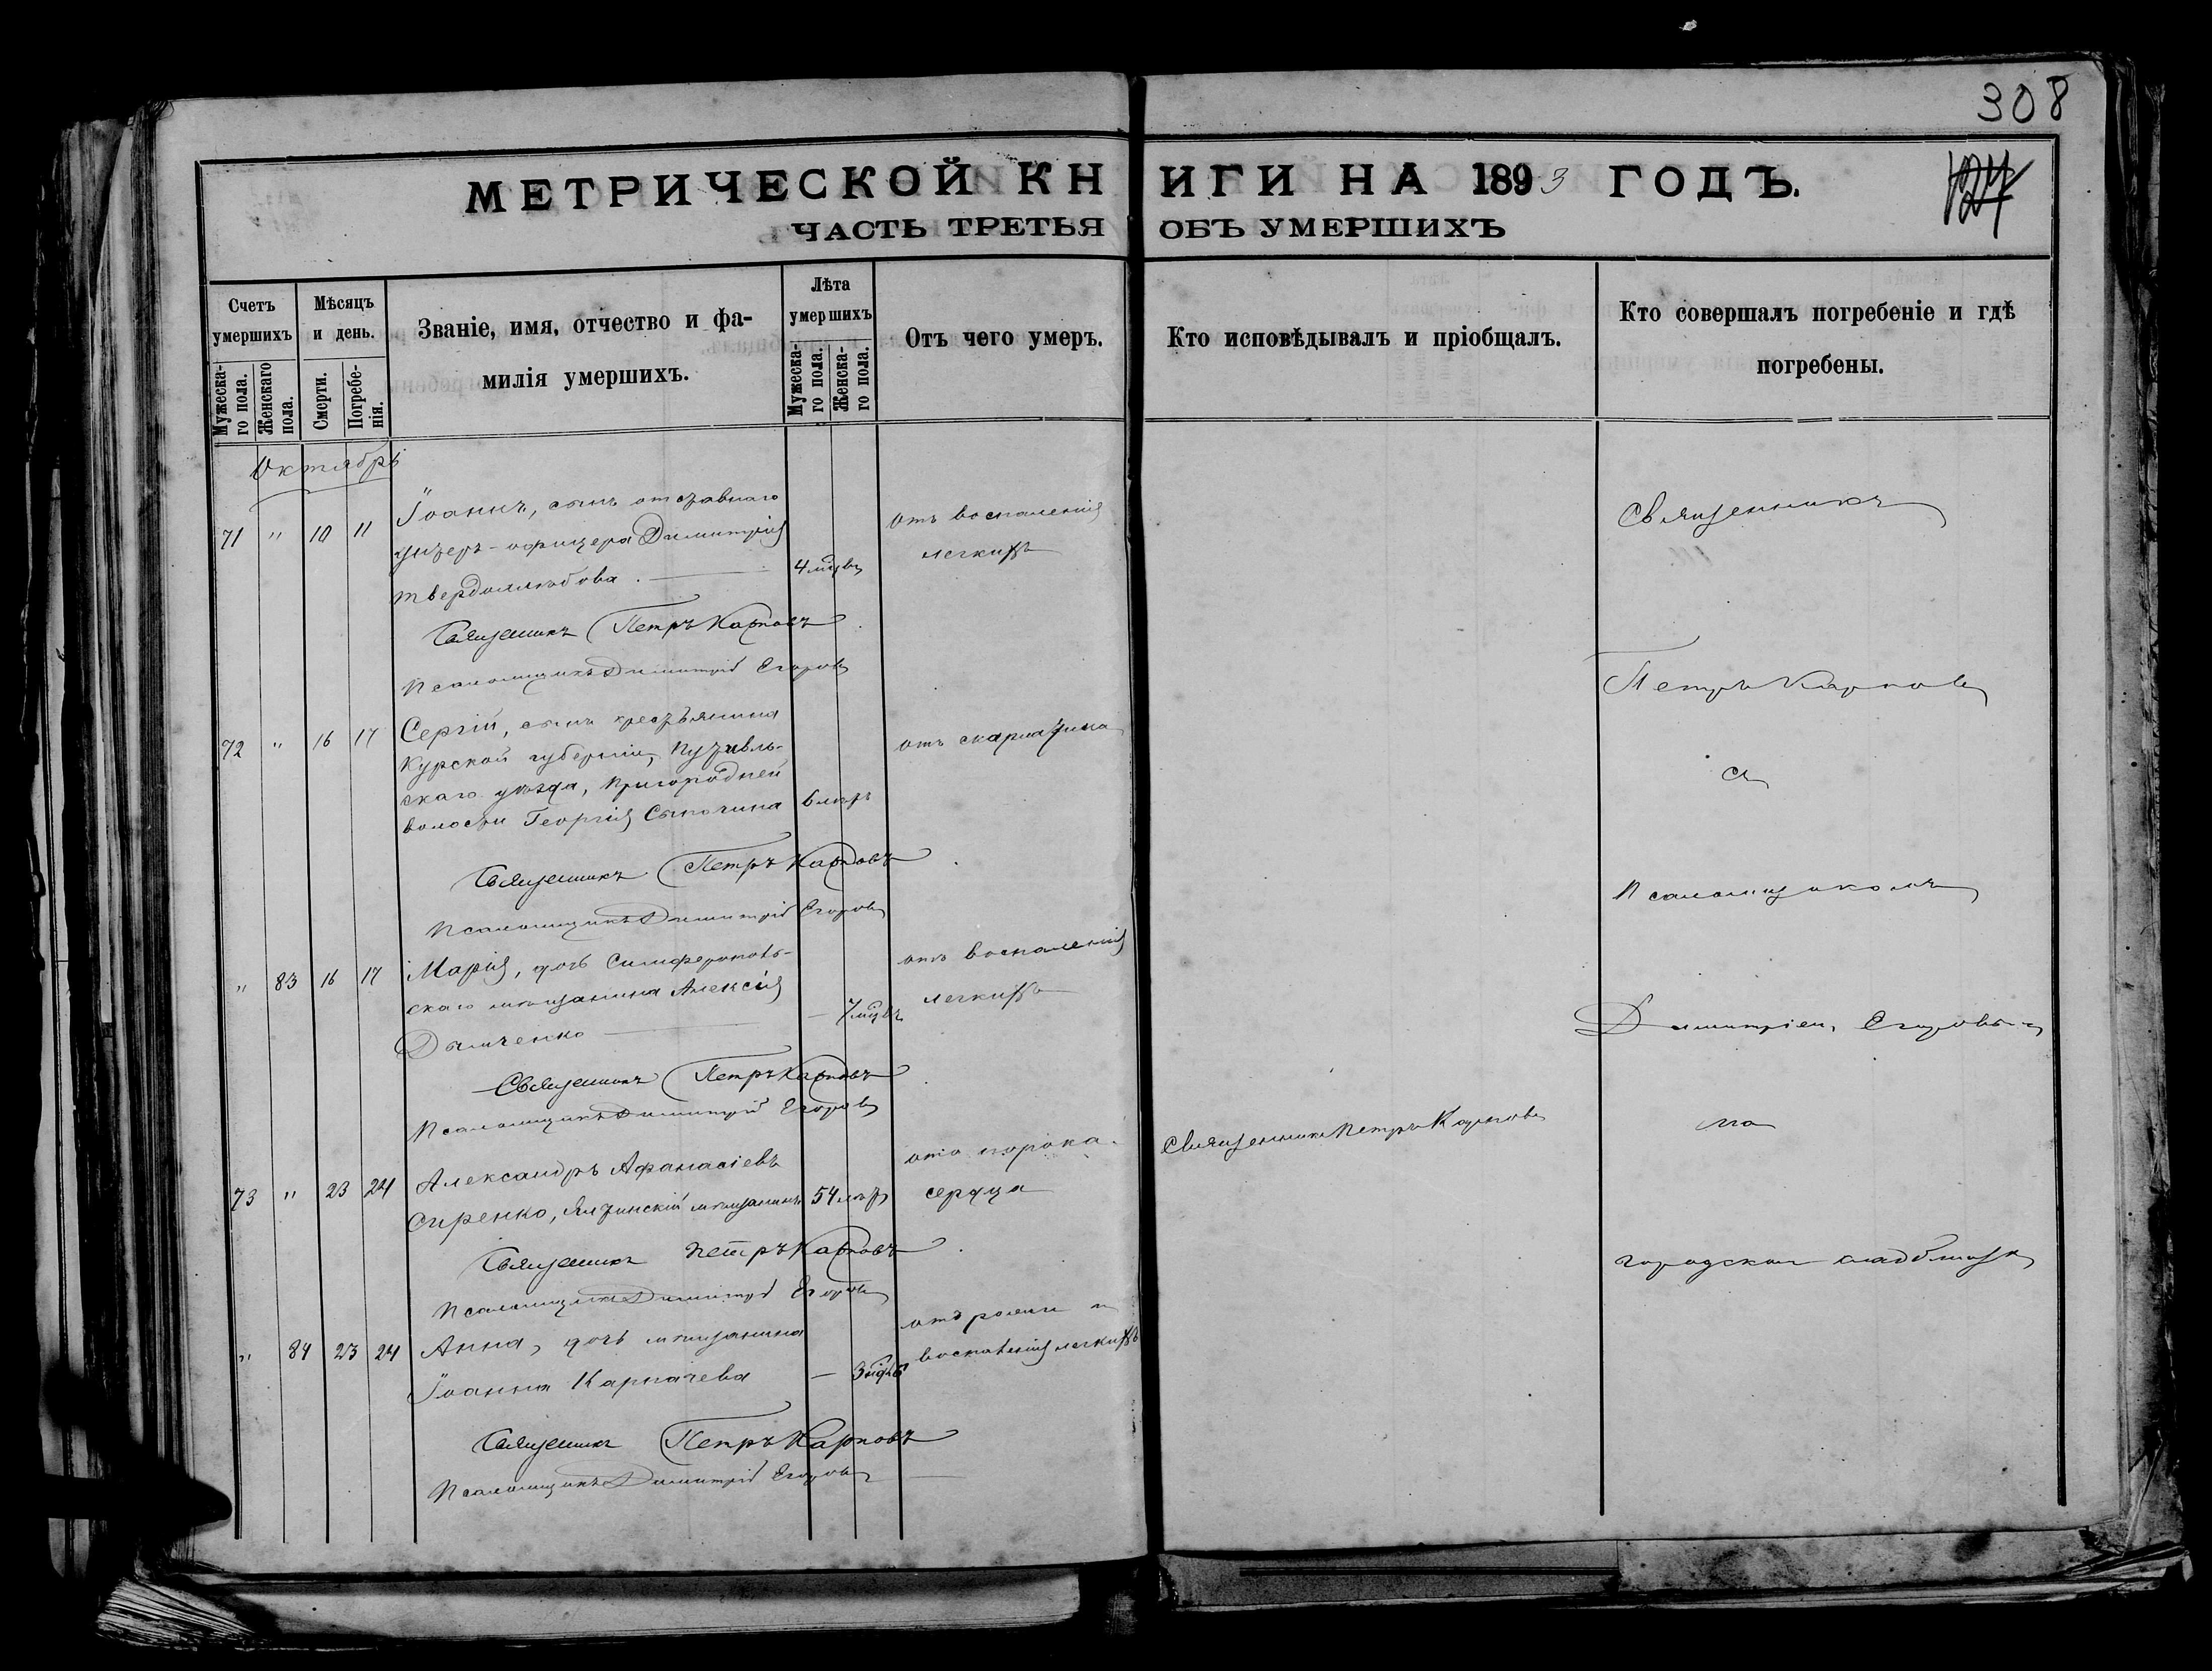 308
МЕТРИЧЕСКОЙ КНИГИ НА 1893 ГОДЪ.
ЧАСТЬ ТРЕТЬЯ ОБЪ УМЕРШИХЪ
Счетъ умершихъ
Мужеска-го пола.
Женскаго пола.
Мѣсяцъ и день.
Смерти.
Погребе-нія.
Званіе, имя, отчество и фа-
милія умершихъ.
Лѣта умершихъ
Мужеска-го пола.
Женска-го пола.
Отъ чего умеръ.
Кто исповѣдывалъ и пріобщалъ.
Кто совершалъ погребеніе и гдѣ
погребены.
Октябрь
71 " 10 11
Іоаннъ, сынъ отставнаго
унтеръ-офицера Димитрія
Твердохлѣбова.
4 мѣц.
отъ воспаленія
легкихъ
Священникъ Петръ Карповъ
Псаломщикъ Димитрій Егоровъ
72 " 16 17
Сергій, сынъ крестьянина
Курской губерніи, Путивль-
скаго уѣзда, Пригородней
волости Георгія
6 лѣтъ
отъ скарлатина
Священникъ Петръ Карповъ
Псаломщикъ Димитрій Егоровъ
" 83 16 17
Марія, дочь Симферополь-
скаго мѣщанина Алексія
Дымченко
— 7 мѣц.
отъ воспаленія
легкихъ
Священникъ Петръ Карповъ
Псаломщикъ Димитрій Егоровъ
73 " 23 24
Александръ Афанасіевъ
Сиренко, Ялтинскій мѣщанинъ
54 лѣтъ
отъ порока
сердца
Священникъ Петръ Карповъ
Священникъ Петръ Карповъ
Псаломщикъ Димитрій Егоровъ
" 84 23 24
Анна, дочь мѣщанина
Іоанна Карпачева
— 3
отъ и
воспаленія легкихъ
Священникъ Петръ Карповъ
Псаломщикъ Димитрій Егоровъ
Священникъ
Петръ Карповъ
съ
Псаломщикомъ
Димитріемъ Егоровымъ
на
городскомъ кладбищѣ